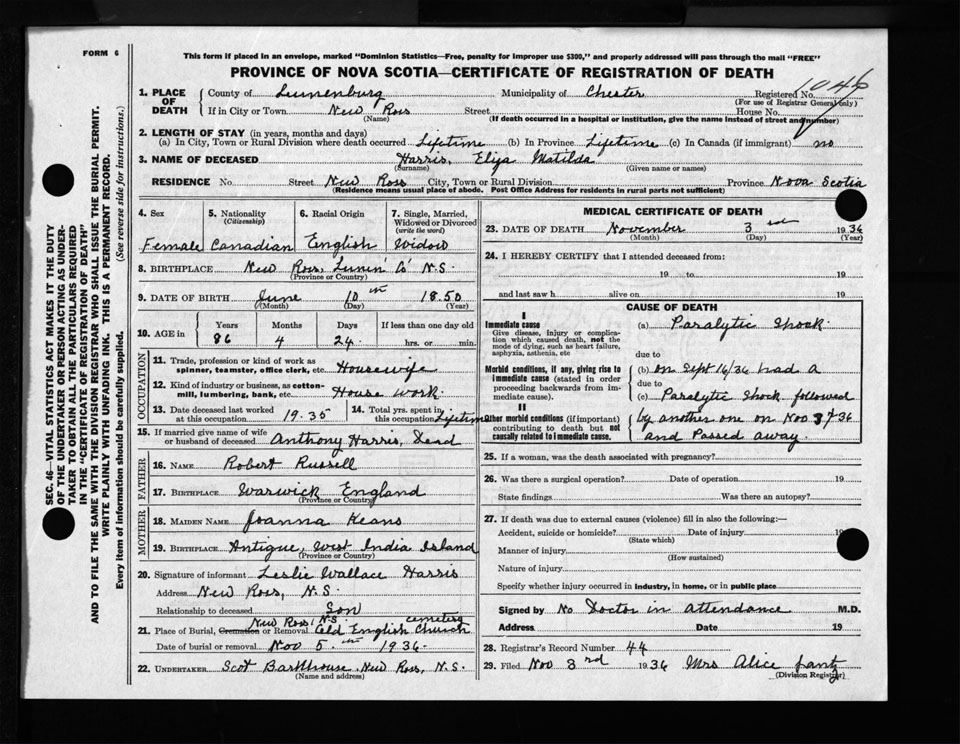 FORM 6
This form if placed in an envelope, marked "Dominion Statistics—Free, penalty for improper use $300," and properly addressed will pass through the mail "FREE"
PROVINCE OF NOVA SCOTIA—CERTIFICATE OF REGISTRATION OF DEATH
1. PLACE OF DEATH County of Lunenburg Municipality of Chester Registered No. 1046
(For use of Registrar General only)
If in City or Town New Ross Street House No.
(Name) (If death occurred in a hospital or institution, give the name instead of street and number)
2. LENGTH OF STAY (in years, months and days)
(a) In City, Town or Rural Division where death occurred Lifetime (b) In Province Lifetime (c) In Canada (if immigrant) no
3. NAME OF DECEASED Harris, Eliza Matilda
(Surname) (Given name or names)
RESIDENCE No. Street New Ross City, Town or Rural Division Province Nova Scotia
(Residence means usual place of abode. Post Office Address for residents in rural parts not sufficient)
4. Sex 5. Nationality (Citizenship) 6. Racial Origin 7. Single, Married, Widowed or Divorced (write the word)
Female Canadian English Widow
8. BIRTHPLACE New Ross, Lunin' Co' N.S.
(Province or Country)
9. DATE OF BIRTH June 10th 1850
(Month) (Day) (Year)
10. AGE in Years Months Days If less than one day old
86 4 24 hrs. or min.
OCCUPATION
11. Trade, profession or kind of work as spinner, teamster, office clerk, etc. Housewife
12. Kind of industry or business, as cotton-mill, lumbering, bank, etc. House work
13. Date deceased last worked at this occupation 1935 14. Total yrs. spent in this occupation Lifetime
15. If married give name of wife or husband of deceased Anthony Harris, Dead
FATHER
16. NAME Robert Russell
17. BIRTHPLACE Warwick England
(Province or Country)
MOTHER
18. MAIDEN NAME Joanna Keans
19. BIRTHPLACE Antigue, West India Island
(Province or Country)
20. Signature of informant Leslie Wallace Harris
Address New Ross, N.S.
Relationship to deceased Son
New Ross, N.S. cemetery
21. Place of Burial, Cremation or Removal Old English Church
Date of burial or removal Nov 5th 1936
22. UNDERTAKER Scot Barkhouse, New Ross, N.S.
(Name and address)
MEDICAL CERTIFICATE OF DEATH
23. DATE OF DEATH November 3rd 1936
(Month) (Day) (Year)
24. I HEREBY CERTIFY that I attended deceased from:
19 to 19
and last saw h alive on 19
CAUSE OF DEATH
I
Immediate cause
Give disease, injury or complication which caused death, not the mode of dying, such as heart failure, asphyxia, asthenia, etc
(a) Paralytic Shock
due to
Morbid conditions, if any, giving rise to immediate cause (stated in order proceeding backwards from immediate cause).
(b) on Sept 16/36 had a
due to
(c) Paralytic Shock followed
II
Other morbid conditions (if important) contributing to death but not causally related to immediate cause.
by another one on Nov 3rd 36
and Passed away.
25. If a woman, was the death associated with pregnancy?
26. Was there a surgical operation? Date of operation 19
State findings Was there an autopsy?
27. If death was due to external causes (violence) fill in also the following:—
Accident, suicide or homicide? Date of injury 19
(State which)
Manner of injury
(How sustained)
Nature of injury
Specify whether injury occurred in industry, in home, or in public place
Signed by No Doctor in attendance M.D.
Address Date 19
28. Registrar's Record Number 44
29. Filed Nov 3rd 1936 Mrs Alice Lantz
(Division Registrar)
SEC. 46—VITAL STATISTICS ACT MAKES IT THE DUTY
OF THE UNDERTAKER OR PERSON ACTING AS UNDER-
TAKER TO OBTAIN ALL THE PARTICULARS REQUIRED
IN THE "CERTIFICATE OF REGISTRATION OF DEATH"
AND TO FILE THE SAME WITH THE DIVISION REGISTRAR WHO SHALL ISSUE THE BURIAL PERMIT.
WRITE PLAINLY WITH UNFADING INK. THIS IS A PERMANENT RECORD.
Every item of information should be carefully supplied. (See reverse side for instructions.)